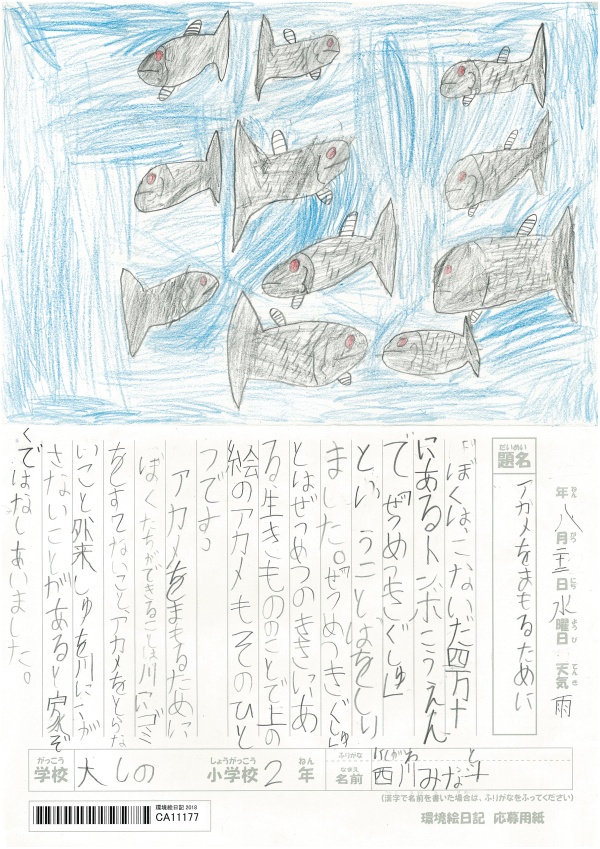 年八月二十二日水曜日天気雨
ねん がつ にち ようび てんき
だいめい
題名
アカメをまもるために
ぼくは、こないだ四万十
にあるトンボこうえん
で「ぜつめつきぐしゅ」
ということばをしり
ました。ぜつめつきぐしゅ
とはぜつめつのききにあ
る生きもののことで上の
絵のアカメもそのひと
つです。
アカメをまもるために
ぼくたちができることは川にゴミ
をすてないこと、アカメをとらな
いこと外来しゅを川ににが
さないことがあると家ぞ
くではなしあいました。
がっこう しょうがっこう ねん
学校 大しの 小学校 2 年
ふりがな にしがわ と
なまえ
名前 西川みな斗
(漢字で名前を書いた場合は、ふりがなをふってください)
環境絵日記 2018
CA11177
環境絵日記 応募用紙